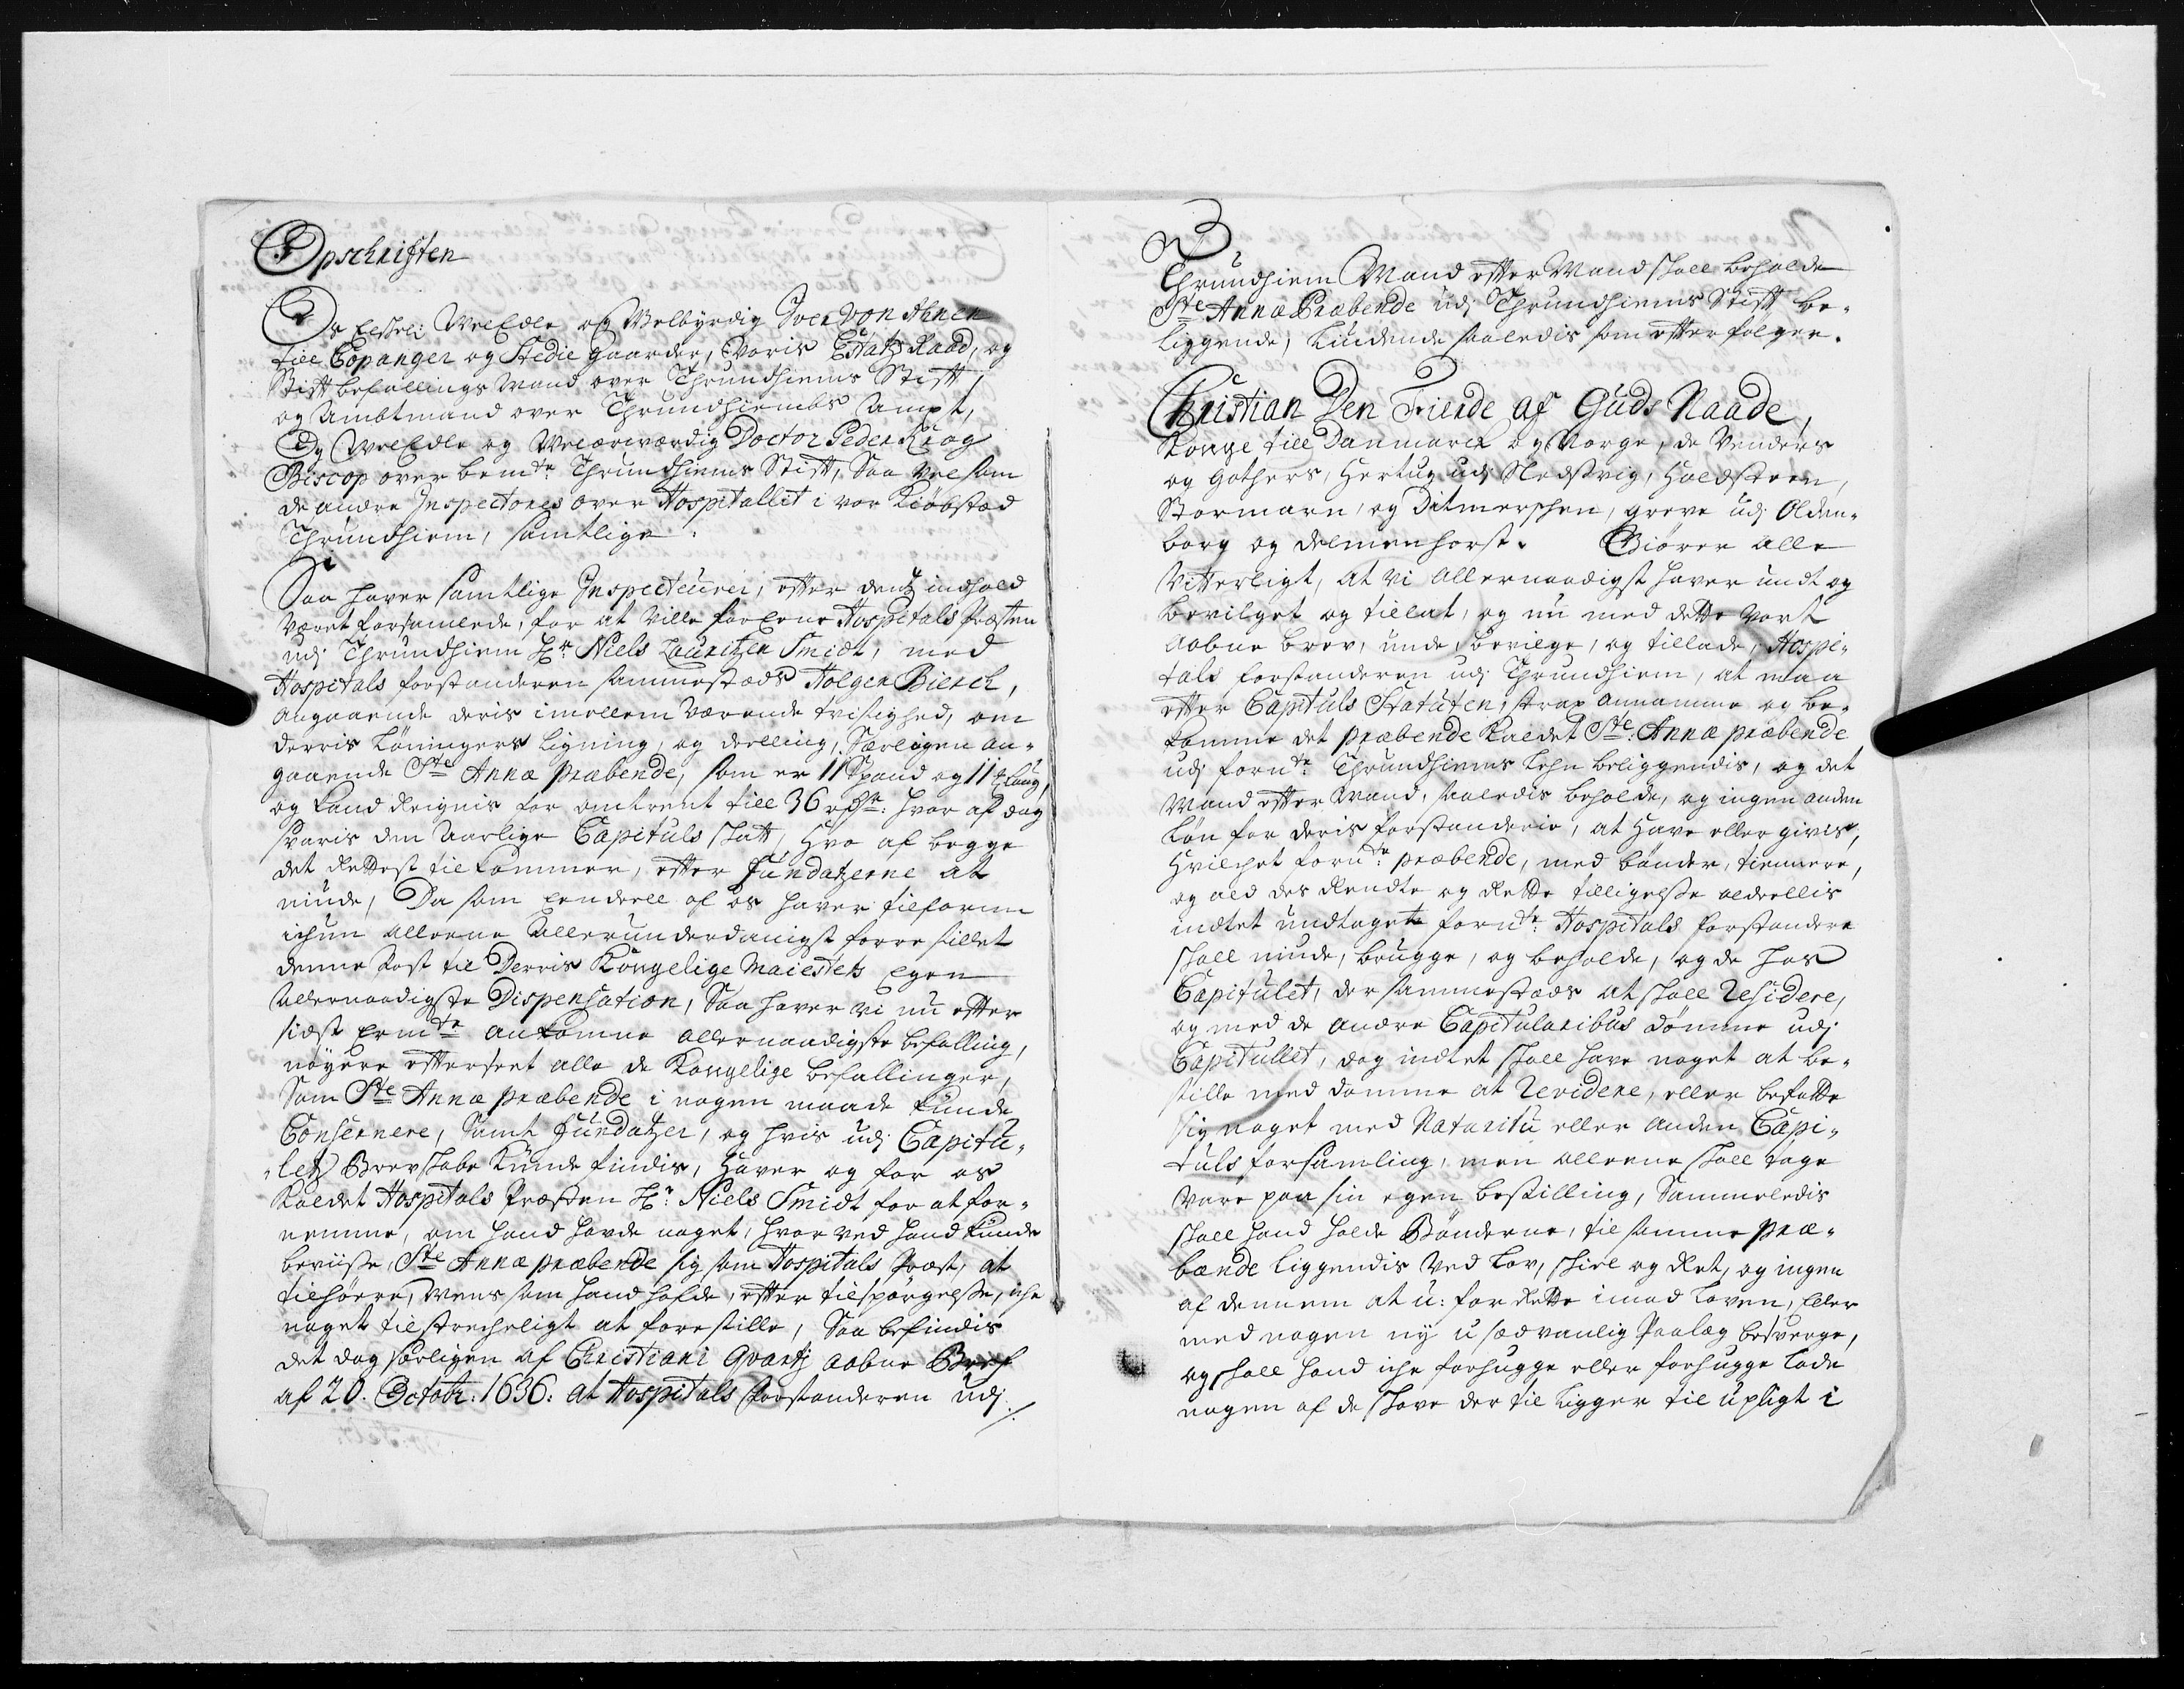 Opschriften
Os Elskel: WelEdle og Welbyrdig Iver von Ahnen
till Copanger og Stedie gaarder, Voris Etatz Raad, og
Stiftbefallingsmand over Thrundhiems Stift,
og Ambtmand over Thrundhiembs Ampt,
Og WelEdle og Welærværdig Doctor Peder Krog
Biscop over bemte: Thrundhiems Stift, Saa vel som
de andre Inspectores over Hospitallet i vor Kiøbstad
Thrundhiem, samtlige.
Saa haver samtlige Inspecteurer, efter dentz indhold
været forsamlede, for at ville foreene Hospitals Præsten
udj Thrundhiem Hr: Niels Lauritzen Smidt, med
Hospitals forstanderen sammestæds Holger Bierch,
angaaende deris imellem værende tvistighed, om
derris Løningers ligning, og deelling, Særligen an-
gaaende Ste Annæ præbende, som er 11 Spand og 11
og kand Reignis for omtrent till 36 rdlr: hvor af dog
svaris den Aarlige Capituls skatt, Hvo af begge
det Rettest tilkommer, efter fundatzerne at
niude, Da som Eendeel af os haver tilforne
ichun alleene Allerunderdanigst forrestillet
denne Post til Derris Kongelige Maiestets Egen
Allernaadigste Dispensation, Saa haver vi nu efter
sidst Ermte ankomne allernaadigste befalling,
nøyere efterseet alle de Kongelige befallinger,
Som Ste Annæ præbende i nogen maade kunde
Consernere, Samt Fundatzer, og hvis udj Capitu-
-letz Brevskabe kunde findis, Haver og for os
kaldet Hospitals Præsten Hr: Niels Smidt for at for-
nemme, om hand havde noget, hvor ved hand kunde
beviisse, Ste Annæ præbende sig som Hospitals Præst, at
tilhøre, Mens som hand hafde, efter tilspørgelse, iche
noget tilstrecheligt at forestille, Saa befindis
det dog særligen af Christiani Qvarti aabne Bref
af 20. Octobr: 1636: at Hospitals forstanderen udj
Thrundhiem Mand efter Mand skall beholde
Ste Annæ Præbende udj Thrundhiems Stift be-
liggende, Liudende saaledis som efterfølger.
Christian Den Fierde af Guds Naade,
Konge till Danmarck og Norge, de Venders
og Gothers, Hertug udj Sledsvig, Holdsteen,
Stormarn, og Ditmerschen, greve udj Olden-
borg og Delmenhorst. Giører alle
Vitterligt, at vi allernaadigst haver undt og
bevilget og tillat, og nu med dette vort
aabne brev, unde, bevilge, og tillade, Hospi-
tals forstanderen udj Thrundhiem, at maa
efter Capituls Statuten, strax annamme og be-
komme det præbende kaldet Ste: Annæ præbende
udj fornte Thrundhiems Lehn beliggendis, og det
Mand efter Mand, saaledis beholde, og ingen anden
Løn for deris forstanderie, at have eller givis,
Hvilchet fornte: præbende, med bønder, tiennere,
og ald des Rendte og Rette tilligelsse aldeelis
indtet undtaget fornte: Hospitals forstandere
skall niude, brugge, og beholde, og de hos
Capitulet, der sammestæds at skall Residere,
og med de andre Capitularibus dømme udj
Capitullet, dog indtet skall have noget at be-
stille med domme at Revidere, eller befatte
sig noget med Nataritu eller anden Capi-
tuls forsamling, men alleene skall tage
vare paa sin egen bestilling, Sammeledis
skall hand holde Bønderne, til samme præ-
bænde liggendis ved Lov, skiel og Ret, og ingen
af dennem at u: forrette imod Loven, Eller
med nogen ny usædvanlig Paalæg besverge,
og skall hand iche forhugge eller forhugge lade
nogen af de skove der til ligger til upligt i